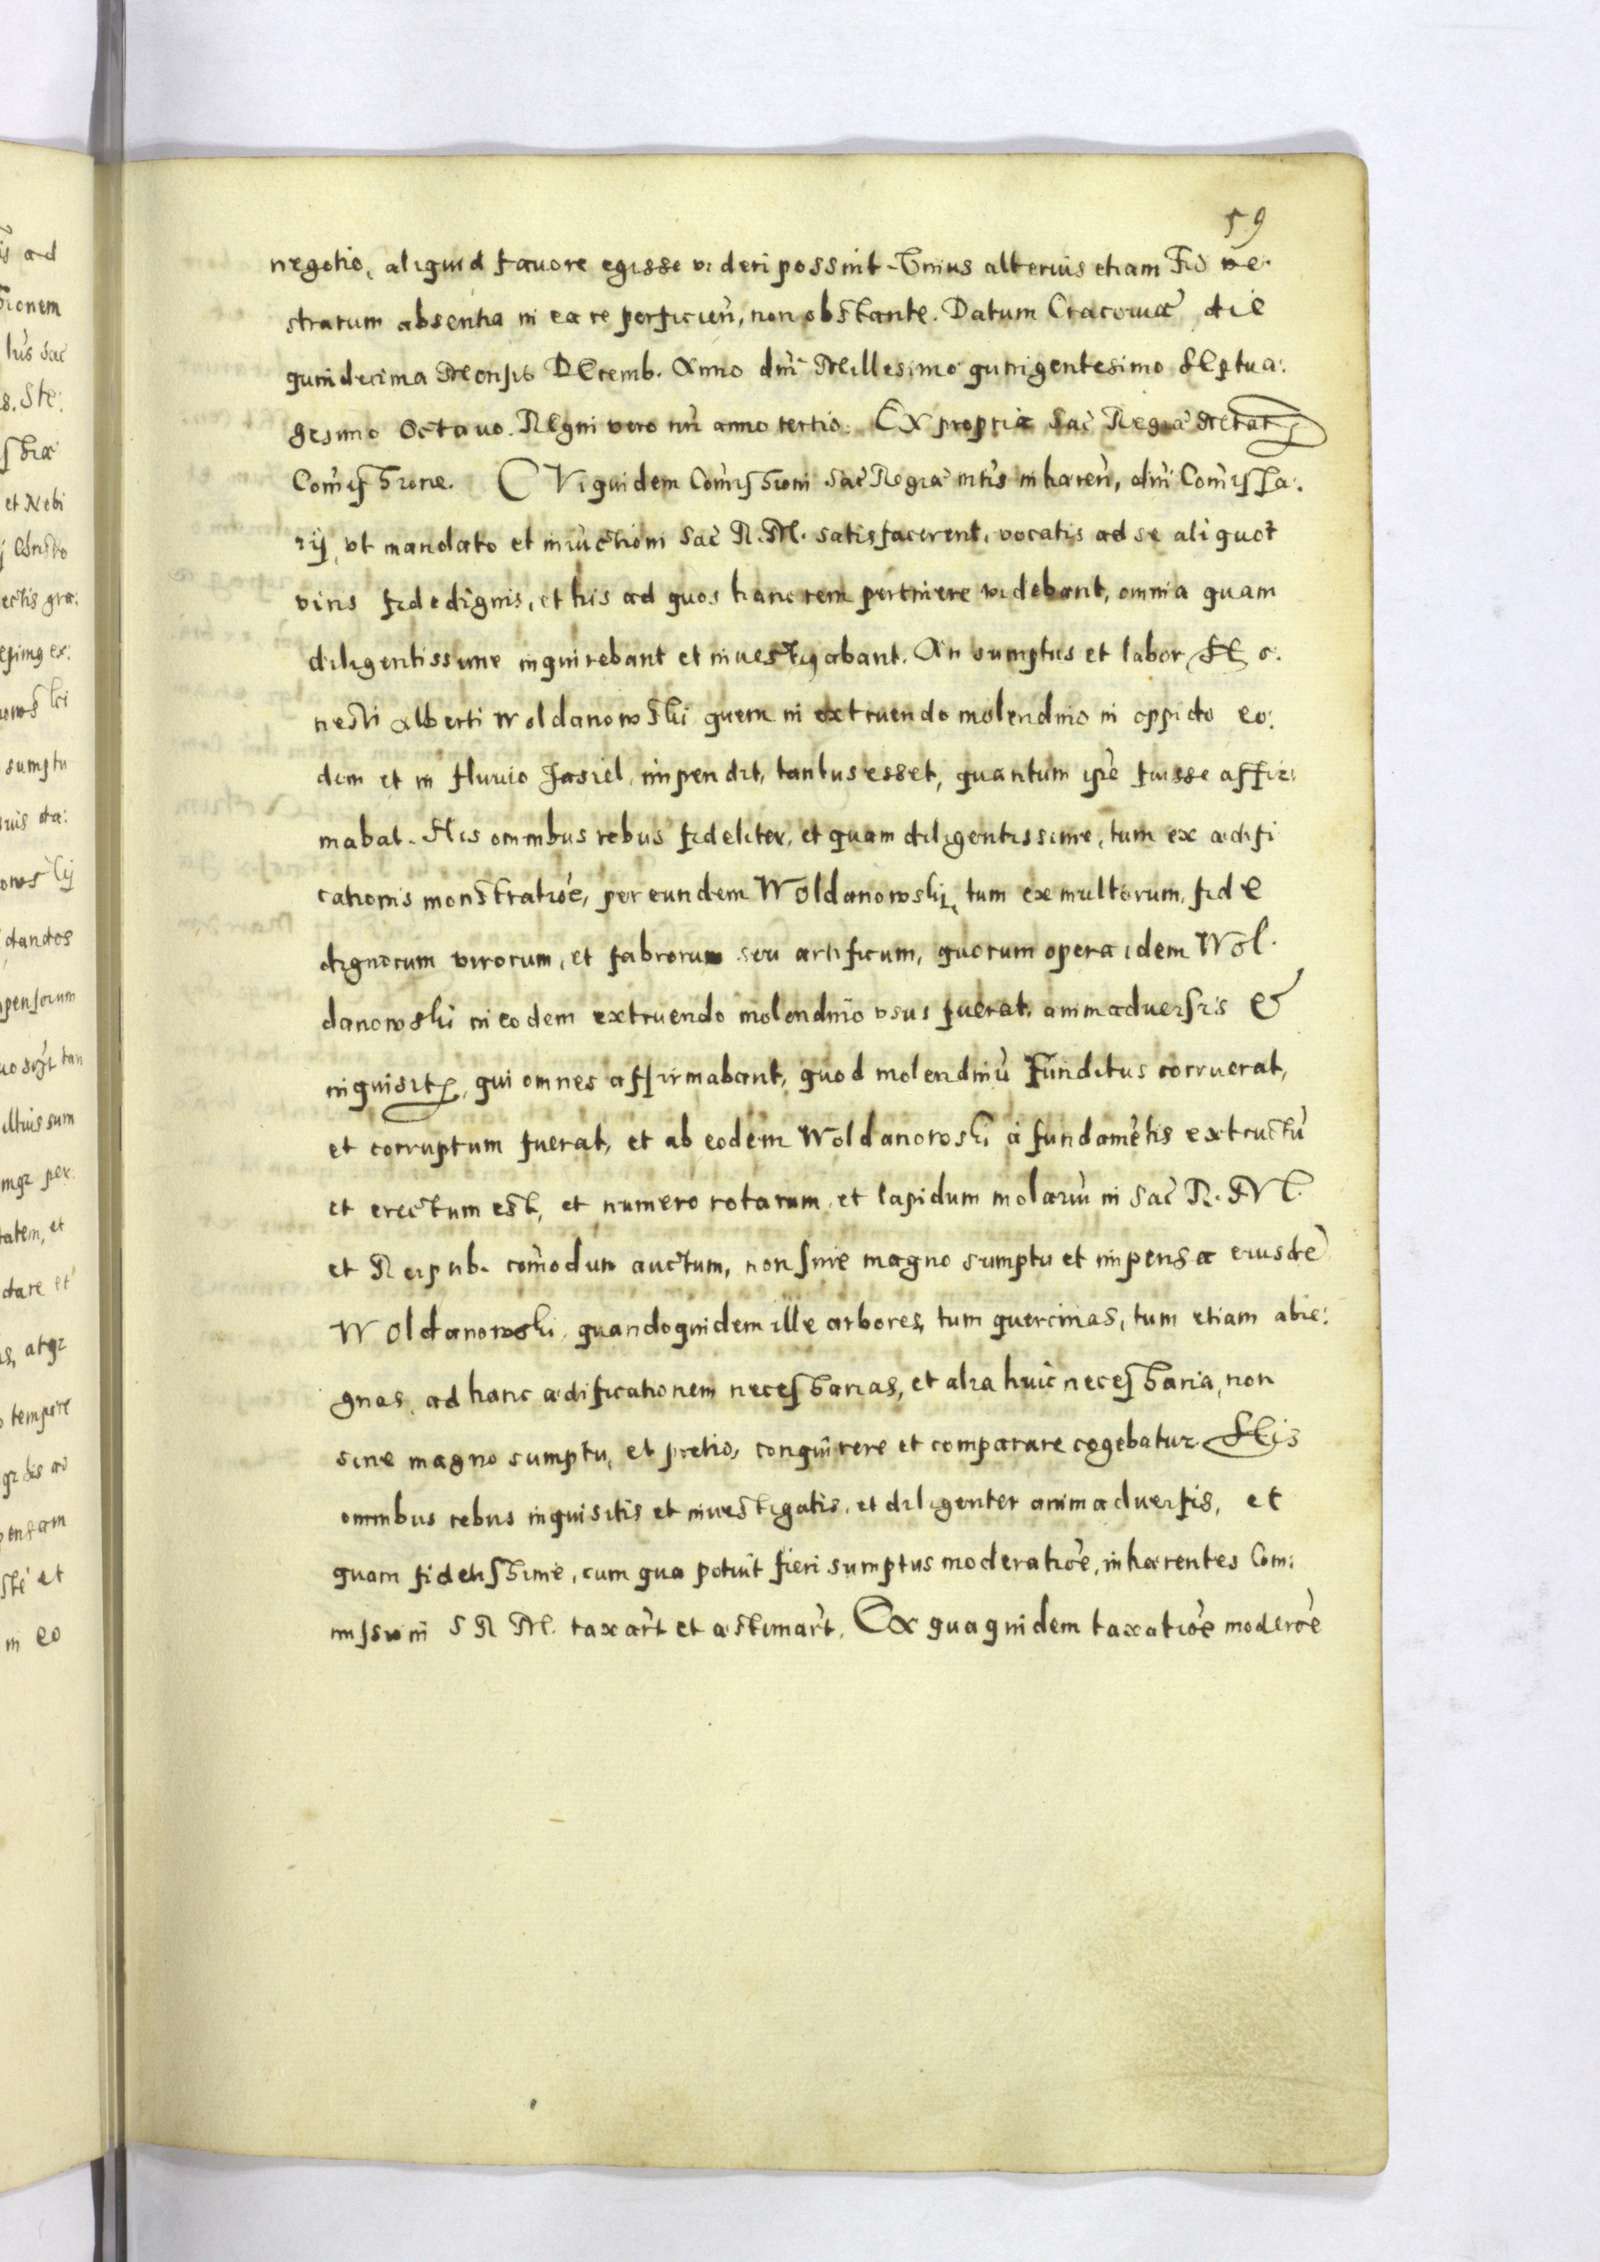 59
negotio, aliquid favore egisse videri possint. Unius alterius etiam Fid ve.
strarum absentia in ea re perficien̄, non obstante. Datum Cracoviæ die
quindecima Mensis Decemb. Anno dnī Millesimo quingentesimo Septua:
gesimo Octavo. Regni vero nrī anno tertio. Ex propria Sac̄ Regiæ Mtatꝭ
Com̄issione. Cui quidem Com̄issioni Sac̄ Regiæ mtīs inhæren̄, dnī Com̄issa:
rij, vt mandato et iniunctioni Sac̄ R. M. satisfacerent, vocatis ad se aliquot
viris fide dignis, et his ad quos hanc rem pertinere videbant, omnia quam
diligentissime inquirebant et investigabant. An sumptus et labor Ho.
nesti Alberti Woldanowski quem in extruendo molendino in oppido eo:
dem et in fluvio Jasiel, impendit, tantus esset, quantum ipse fuisse affir:
mabat. His omnibus rebus fideliter, et quam diligentissime, tum ex ædifi
cationis monstratiōe, per eundem Woldanowski, tum ex multorum, fide
dignorum virorum, et fabrorum seu artificum, quorum opera idem Wol.
danowski in eodem extruendo molendino vsus fuerat, animadversis &
inquisitꝭ, qui omnes affirmabant, quod molendinū funditus corruerat,
et corruptum fuerat, et ab eodem Woldanowski à fundamētis extructū
et erectum est, et numero rotarum, et lapidum molariū in Sac̄ R. M.
et Reipub. com̄odum auctum, non sine magno sumptu et impensa eiusdē
Woldanowski, quandoquidem ille arbores, tum quercinas, tum etiam abie:
gnas, ad hanc ædificationem necessarias, et alia huic necessaria, non
sine magno sumptu, et pretio, conquirere et comparare cogebatur. His
omnibus rebus inquisitis et investigatis, et diligenter animadversis, et
quam fidelissime, cum qua potuit fieri sumptus moderatiōe, inhærentes Com:
missioni S R M. taxar̄t et æstimar̄t. Ex qua quidem taxatiōe moderōe